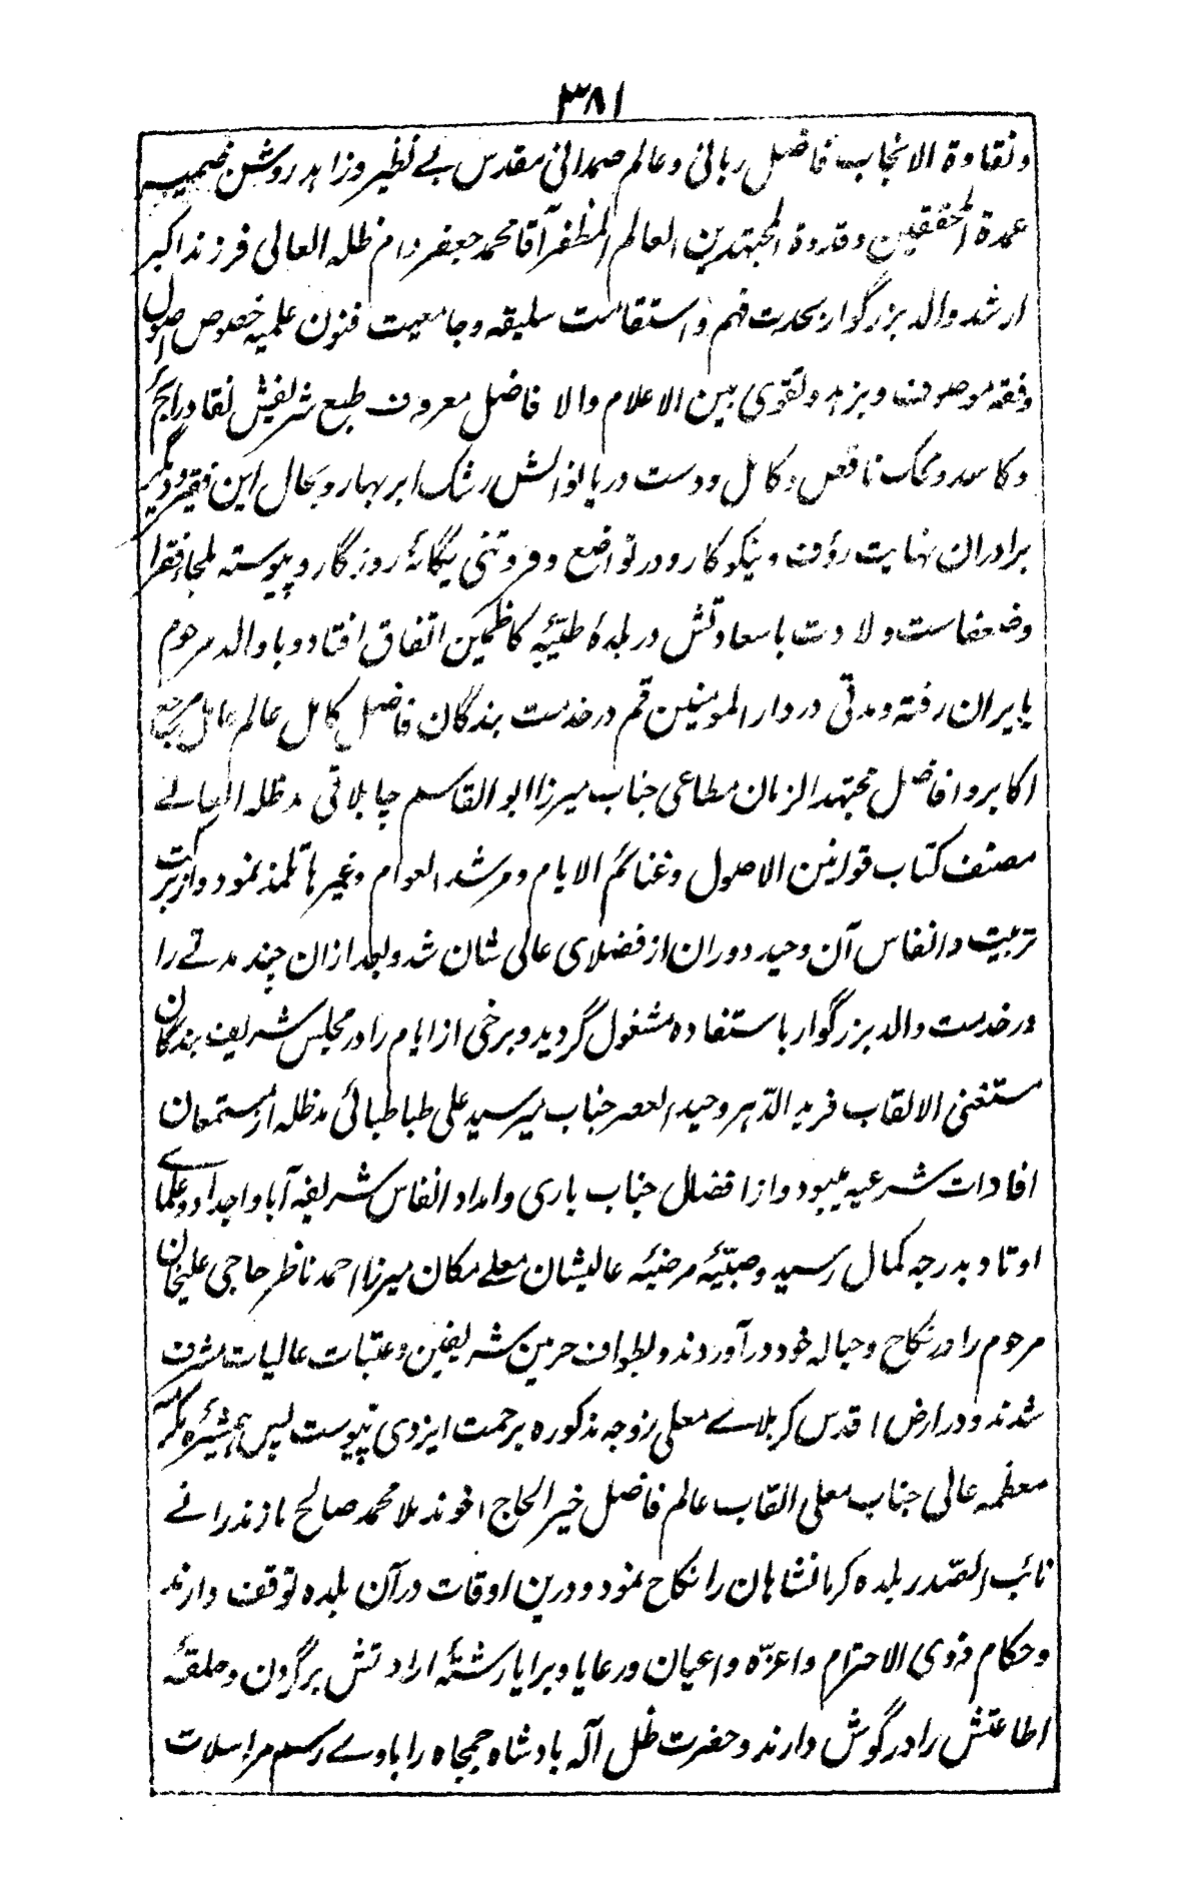 ۳۸۱
و نقاوة الانجاب فاضل ربانی و عالم صمدانی مقدس بے نظیر و زاہد روشن ضمیر
عمدة المحققین و قدوة المجتہدین العالم المظفر آقا محمد جعفر دام ظلہ العالی فرزند اکبر
ارشد والد بزرگوار بحدت فہم و استقامت سلیقہ و جامعیت فنون علمیہ خصوص اصول
و فقہ موصوف و بزہد و تقوی بین الاعلام والا فاضل معروف طبع شریفش نقاد رائج
و کاسد و محک ناقص و کامل و دست دریا نوالش رشک ابر بہار و بحال این فقیر و دیگر
برادران نہایت رؤف و نیکو کار و در تواضع و فروتنی یگانۂ روزگار و پیوستہ ملجا فقرا
و ضعفاست ولادت باسعادتش در بلدۂ طیّبہ کاظمین اتفاق افتاد و با والد مرحوم
بایران رفتہ و مدتی در دار المومنین قم در خدمت بندگان فاضل کامل عالم عامل مرجع
اکابر و افاضل مجتہد الزمان مطاعی جناب میرزا ابو القاسم چاپلاقی مدظلہ العالے
مصنف کتاب قوانین الاصول و غنائم الایام و مرشد العوام و غیرہا تلمذ نمود و از برکت
تربیت و انفاس آن وحید دوران از فضلای عالی شان شد و بعد ازان چند مدتے را
در خدمت والد بزرگوار باستفادہ مشغول گردید و برخی از ایام را در مجلس شریف بندگان
مستغنی الالقاب فرید الدّہر وحید العصر جناب میر سید علی طباطبائی مدظلہ از مستمعان
افادات شرعیہ میبود و از افضال جناب باری و امداد انفاس شریفہ آبا و اجداد و علمای
اوتاد بدرجہ کمال رسید و صبیّۂ مرضیّہ عالیشان معلے مکان میرزا احمد ناظر حاجی علیخان
مرحوم را در نکاح و حبالہ خود در آوردند و بطواف حرمین شریفین و عتبات عالیات مشرف
شدند و در ارض اقدس کربلاے معلی زوجہ مذکورہ برحمت ایزدی پیوست پس ہمشیرہ مکرمہ
معظمہ عالی جناب معلی القاب عالم فاضل خیر الحاج اخوند ملا محمد صالح مازندرانے
نائب الصدر بلدہ کرمانشاہان را نکاح نمود و درین اوقات در آن بلدہ توقف دارند
و حکام ذوی الاحترام و اعزّہ و اعیان و رعایا و برایا رشتۂ ارادتش بر گردن و حلقۂ
اطاعتش را در گوش دارند و حضرت ظل آلہ بادشاہ جمجاہ را باوے رسم مراسلات